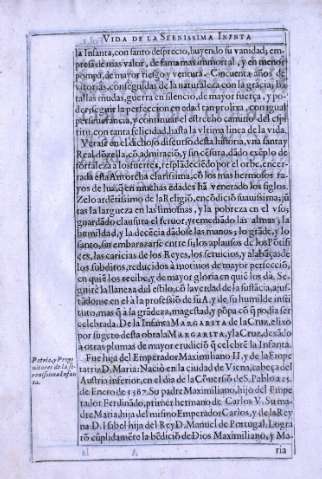 VIDA DE LA SERENISSIMA INFNTA
la Infanta, con santo desprecio, huyendo su vanidad; em-
presa de mas valor, de fama mas immortal, y en menor
pompa, de mayor riesgo y ventura. Cincuenta años de
vitorias, conseguidas de la naturaleza con la gracia, ba-
tallas mudas, guerra en silencio, de mayor fuerça, y po-
der, seguir la perfeccion en edad tan prolixa, con igual
perseuerancia, y continuar el estrecho camino del espi-
ritu, con tanta felicidad, hasta la vltima linea de la vida.
Verase en el dichoso discurso desta historia, vna santa y
Real donzella, cõ admiraciõ, y sin cẽsura, dãdo exẽplo de
fortaleza a los fuertes, resplãdeciẽdo por el orbe, encer-
rada esta Antorcha clarissima, cõ los mas hermosos ra-
yos de luz, q̃ en muchas edades hã venerado los siglos.
Zelo ardẽtissimo de la Religiõ, encõdiciõ suauissima; jũ-
tas la largueza en las limosnas, y la pobreza en el vso;
guardãdo clausura el feruor, y remediãdo las almas; la
humildad, y la decẽcia dãdose las manos; lo grãde, y lo
santo, sin embarazarse entre si; los aplausos de los Põtifi-
ces, las caricias de los Reyes, los seruicios, y alabãças de
los subditos, reducidos à motiuos de mayor perfecciõ,
en quiẽ los recibe, y de mayor gloria en quiẽ los dà. Se-
guirè la llaneza del estilo, cõ la verdad de la sustãcia, ajus-
tãdome en el à la professiõ de su A. y de su humilde insti-
tuto, mas q̃ à la grãdeza, magestad, y põpa cõ q̃ podia ser
celebrada. De la Infanta MARGARITA de la Cruz, elixo
por sugeto desta obra la MARGARITA, y la Cruz, dexãdo
a otras plumas de mayor erudiciõ q̃ celebrẽ la Infanta.
Fue hija del Emperador Maximiliano II. y de la Empe-
ratriz D. Maria: Naciò en la ciudad de Viena, cabeça del
Austria inferior, en el dia de la Cõuersiõ de S. Pablo a 25.
de Enero de 1567. Su padre Maximiliano, hijo del Empe-
rador Ferdinãdo, primer hermano de Carlos V. Su ma-
dre Maria hija del mismo Emperador Carlos, y de la Rey
na D. Isabel hija del Rey D. Manuel de Portugal. Logra
rõ cũplidamẽte la bẽdiciõ de Dios Maximiliano, y Ma-
ria
Patria, y Proge
nitores de la se-
renissima Infan
ta.